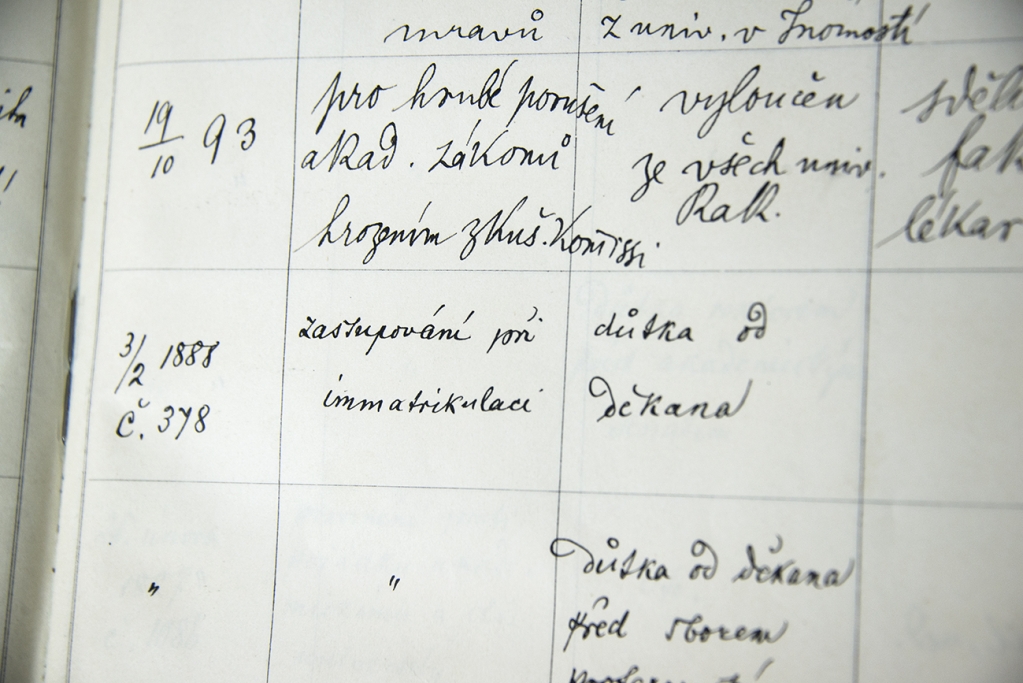 mravů z univ. v Inomostí
19/10 93 pro hrubé porušení vyloučen
akad. zákonů ze všech univ.
Rak.
hrozením zkuš. Komissi
lékař
zastupování při důtka od
3/2 1888
immatrikulaci děkana
č. 378
důtka od děkana
" "
před sborem